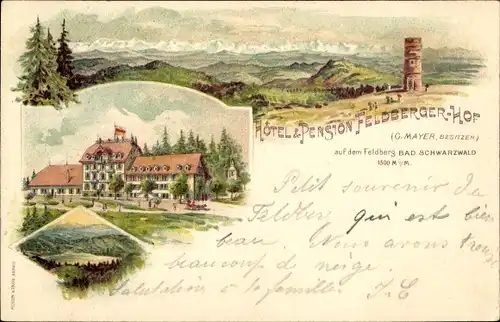 HÔTEL & PENSION FELDBERGER-HOF
(C. MAYER, BESITZER)
auf dem Feldberg BAD. SCHWARZWALD
1500 M/M.
Petit souvenir du
Feldberg qui est bien
beau. Nous avons trouvé
beaucoup de neige.
Salutation à la famille J. C